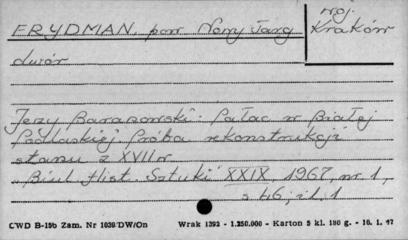 FRYDMAN, pow. Nowy Targ
woj. Kraków
dwór
Jerzy Baranowski: Pałac w Białej
Podlaskiej. Próba rekonstrukcji
stanu z XVII w.
Biul. Hist. Sztuki XXIX, 1967, nr. 1,
s. 46, il. 1
CWD B-19b Zam. Nr 1039/DW/On Wrak 1392 - 1.250.000 - Karton 5 kl. 180 g. - 16. 1. 47